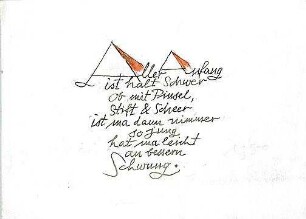 Aller Anfang
ist halt Schwer
ob mit Pinsel,
Stift & Scheer
ist ma dann nimmer
so jung
hat ma leicht
an bessern
Schwung.